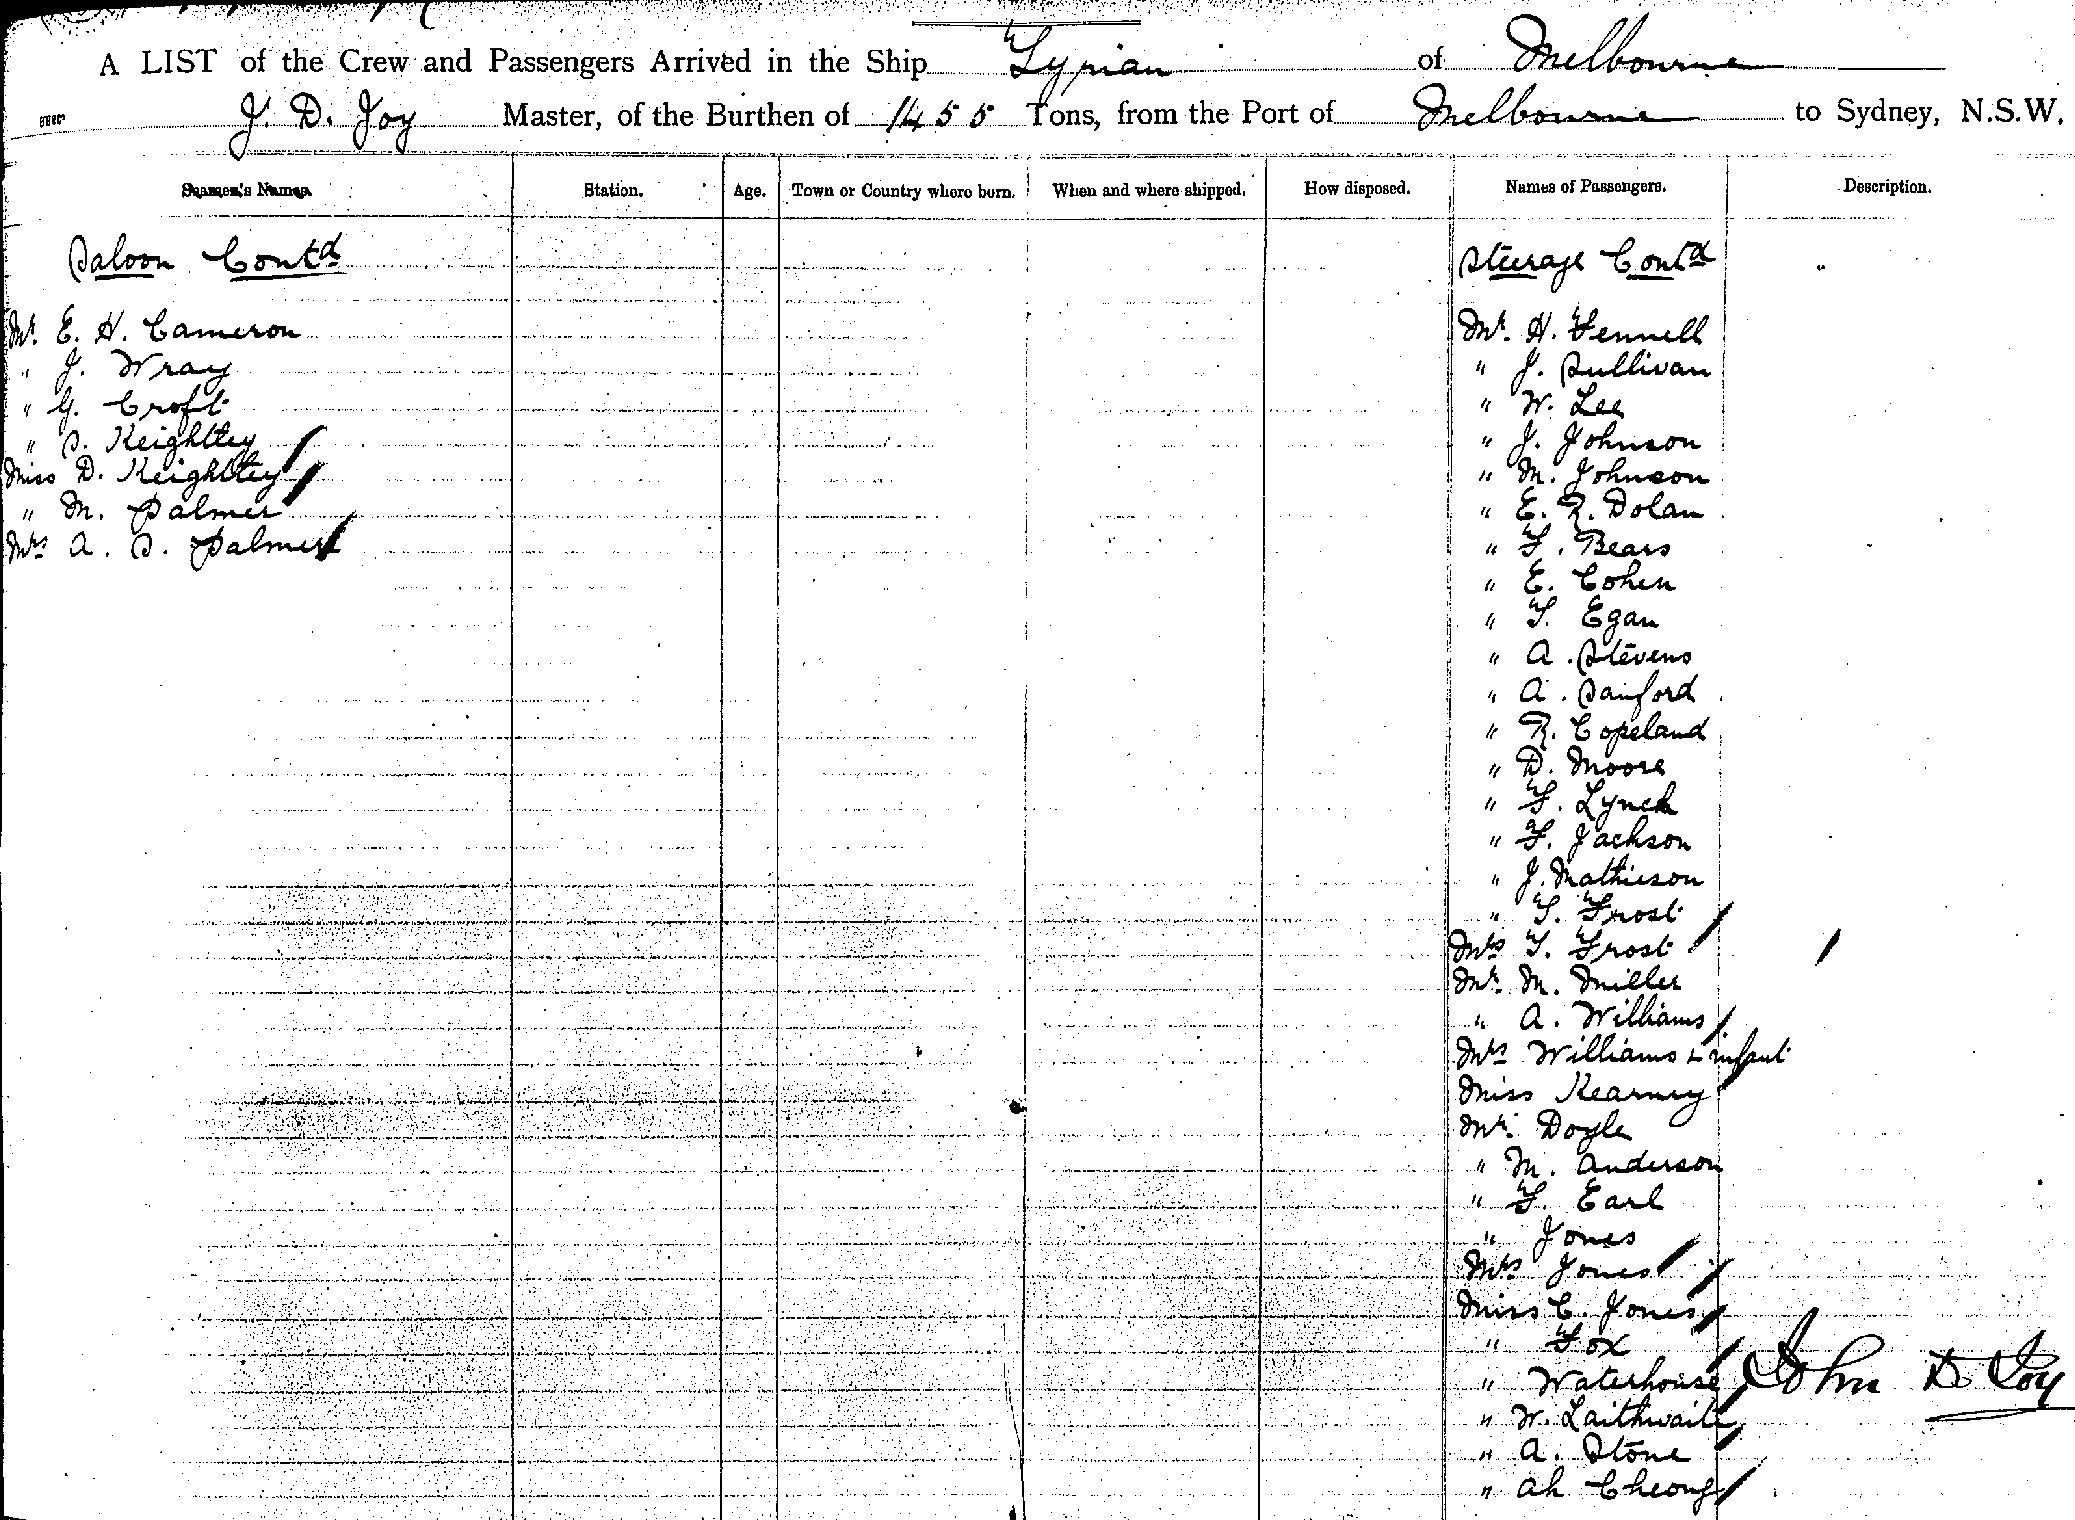 A LIST of the Crew and Passengers Arrived in the Ship Tyrian of Melbourne
J. D. Joy Master, of the Burthen of 1455 Tons, from the Port of Melbourne to Sydney, N.S.W.
Seamen's Names. Station. Age. Town or Country where born. When and where shipped. How disposed. Names of Passengers. Description.
Saloon Contd
Mr. E. H. Cameron
" J. Wray
" G. Croft
" S. Keightley
Miss D. Keightley
" M. Palmer
Mrs A. S. Palmer
Steerage Contd "
Mr. H. Fennell
" J. Sullivan
" W. Lee
" J. Johnson
" M. Johnson
" E. R. Dolan
" F. Bears
" E. Cohen
" T. Egan
" A. Stevens
" A. Sanford
" R. Copeland
" D. Moore
" F. Lynch
" F. Jackson
" J. Mathieson
" T. Frost
Mrs T. Frost
Mr. M. Miller
" A. Williams
Mrs Williams & infant
Miss Kearney
Mr. Doyle
" M. Anderson
" F. Earl
" Jones
Mrs Jones
Miss C. Jones
" Fox
" Waterhouse
" W. Laithwaite
" A. Stone
" Ah Cheong
John D Joy